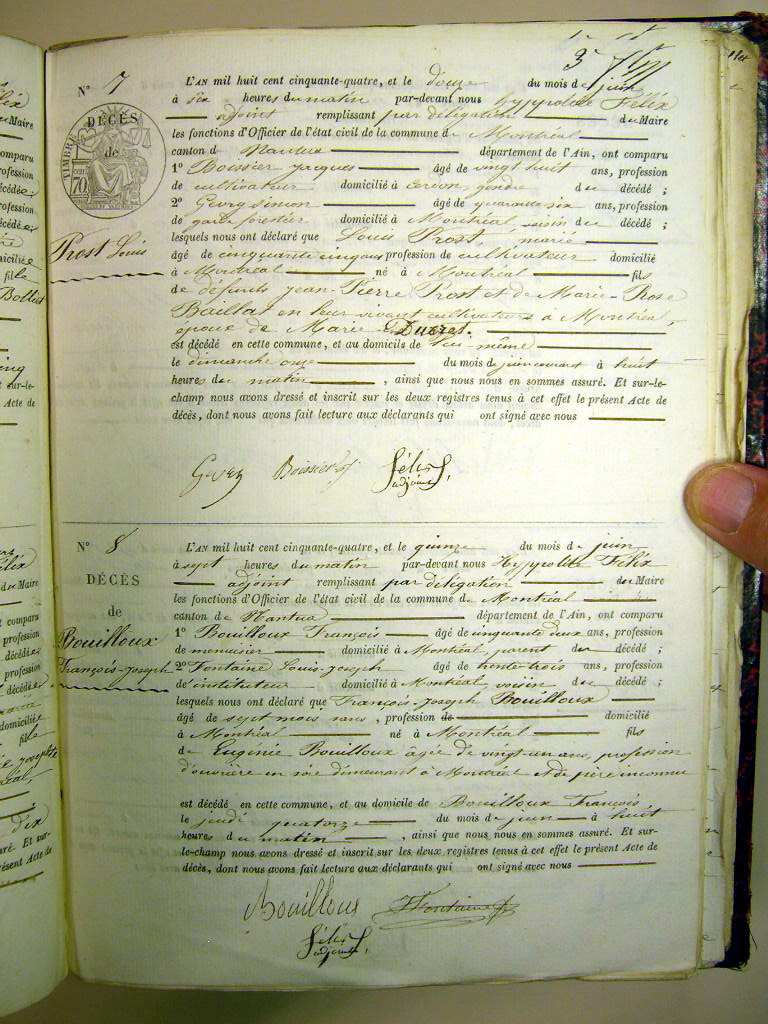 N° 7
DÉCÈS
de
Prost Louis
TIMBRE
70
L'AN mil huit cent cinquante-quatre, et le douze du mois de juin
à six heures du matin par-devant nous hyppolite Félix
adjoint remplissant par délégation du Maire
les fonctions d'Officier de l'état civil de la commune de Montréal
canton d Nantua département de l'Ain, ont comparu
1° Boissier Jacques âgé de vingt huit ans, profession
de cultivateur domicilié à cerdon, gendre du décédé ;
2° Georg simon âgé de quarante six ans, profession
de garde forestier domicilié à Montréal, voisin du décédé ;
lesquels nous ont déclaré que Louis Prost, marié
âgé de cinquante cinq ans profession de cultivateur domicilié
à Montréal né à Montréal fils
de défunts jean-Pierre Prost et de Marie-Rose
Baillat en leur vivant cultivateurs à Montréal,
époux de Marie Duzret.
est décédé en cette commune, et au domicile de lui-même
le dimanche onze du mois de juin courant à huit
heures du matin, ainsi que nous nous en sommes assuré. Et sur-le-
champ nous avons dressé et inscrit sur les deux registres tenus à cet effet le présent Acte de
décès, dont nous avons fait lecture aux déclarants qui ont signé avec nous
Boissier Félix
adjoint
N° 8
DÉCÈS
de
Bouilloux
François-Joseph
L'AN mil huit cent cinquante-quatre, et le quinze du mois de juin
à sept heures du matin par-devant nous Hyppolite Félix
adjoint remplissant par délégation du Maire
les fonctions d'Officier de l'état civil de la commune de Montréal
canton de Nantua département de l'Ain, ont comparu
1° Bouilloux François âgé de cinquante deux ans, profession
de menuisier domicilié à Montréal, parent du décédé ;
2° Fontaine Louis-Joseph âgé de trente-trois ans, profession
de instituteur domicilié à Montréal voisin du décédé ;
lesquels nous ont déclaré que François-Joseph Bouilloux
âgé de sept mois sans, profession de domicilié
à Montréal né à Montréal fils
de Eugénie Bouilloux âgée de vingt-un ans, profession
d'ouvrière en soie demeurant à Montréal et de père inconnu
est décédé en cette commune, et au domicile de Bouilloux François
le jeudi quatorze du mois de juin à huit
heures du matin, ainsi que nous nous en sommes assuré. Et sur-
le-champ nous avons dressé et inscrit sur les deux registres tenus à cet effet le présent Acte de
décès, dont nous avons fait lecture aux déclarants qui ont signé avec nous
Bouilloux Fontaine
Félix
adjoint